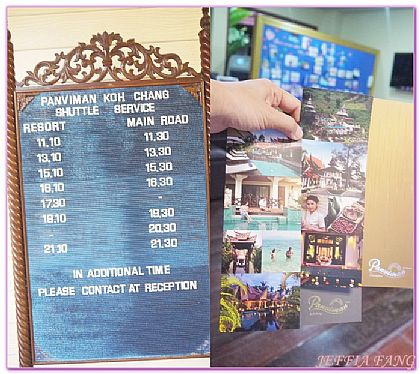 PANVIMAN KOH CHANG
SHUTTLE SERVICE
RESORT MAIN ROAD
11.10 11.30
13.10 13.30
15.10 15.30
16.10 16.30
17.30 -
18.10 19.30
- 20.30
21.10 21.30
IN ADDITIONAL TIME
PLEASE CONTACT AT RECEPTION
Panviman
Panviman
JEFFIA FANG